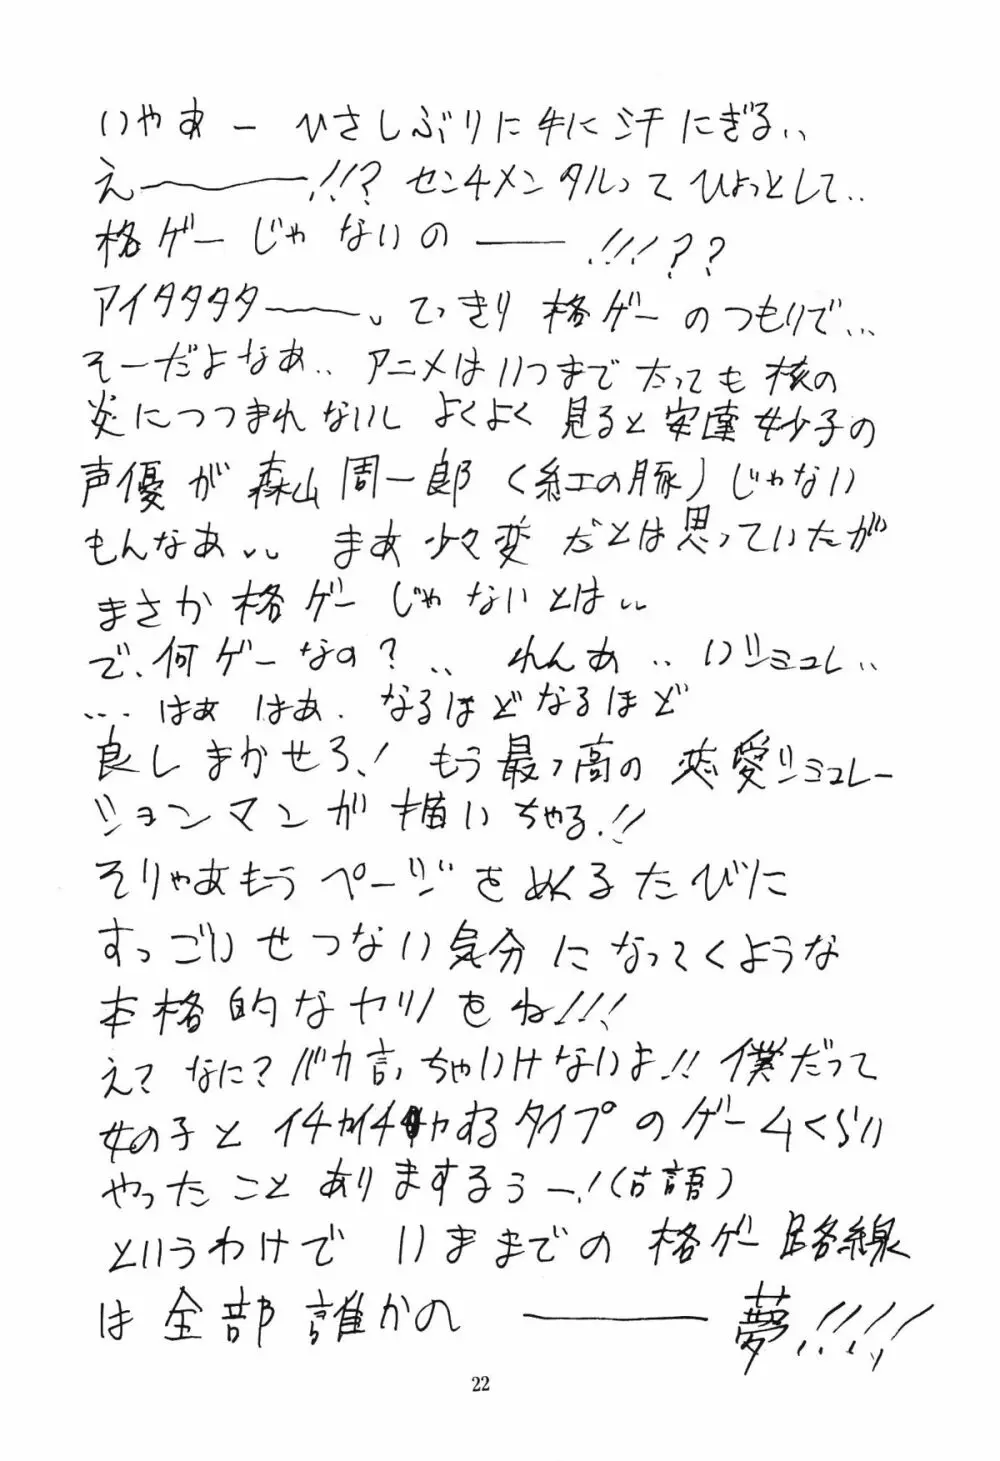 いやあー ひさしぶりに手に汗にぎる、、
え———!!? センチメンタルってひょっとして..
格ゲーじゃないの——!!!??
アイタタタタ——、てっきり格ゲーのつもりで...
そーだよなあ.. アニメはいつまでたっても核の
炎につつまれないし よくよく見ると安達妙子の
声優が森山周一郎(紅の豚)じゃない
もんなあ、、 まあ少々変だとは思っていたが
まさか格ゲーじゃないとは、、
で、何ゲーなの? .. れんあ .. いシミュレ..
... はぁ はぁ. なるほどなるほど
良しまかせろ! もう最っ高の恋愛シミュレー
ションマンガ描いちゃる!!
そりゃあもうページをめくるたびに
すっごいせつない気分になってくような
本格的なヤツをね!!!
え? なに? バカ言っちゃいけないよ!! 僕だって
女の子とイチャイチャするタイプのゲームくらい
やったことありまするぅー!(古語)
というわけでいままでの格ゲー路線
は全部誰かの———夢!!!!
22